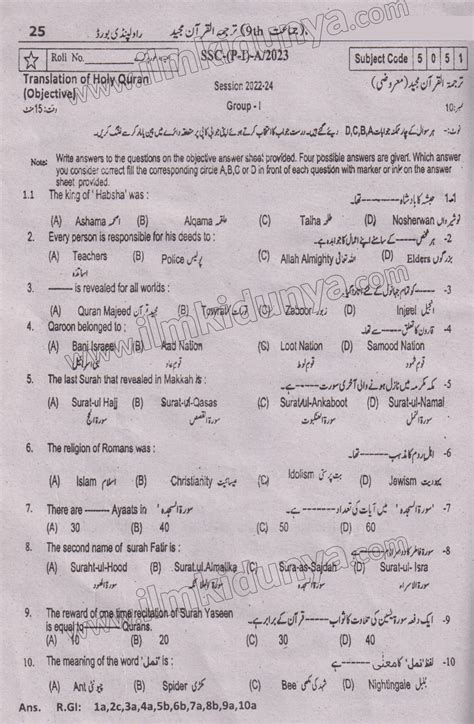 25 راولپنڈی بورڈ ترجمۃ القرآن مجید (9th جماعت)
Roll No. SSC-(P-I)-A/2023 Subject Code 5 0 5 1
Translation of Holy Quran Session 2022-24 ترجمۃ القرآن مجید (معروضی)
(Objective) Group - I
وقت: 15 منٹ نمبر: 10
نوٹ:- ہر سوال کے چار ممکنہ جوابات D,C,B,A دیئے گئے ہیں۔ درست جواب کا انتخاب کرتے ہوئے اپنی جوابی کاپی پر متعلقہ دائرے میں
Note: Write answers to the questions on the objective answer sheet provided. Four possible answers are given. Which answer
you consider correct fill the corresponding circle A,B,C or D in front of each question with marker or ink on the answer
sheet provided.
1.1 The king of ' Habsha' was : حبشہ کا بادشاہ -------- تھا۔
(A) Ashama اصحمہ (B) Alqama علقمہ (C) Talha طلحہ (D) Nosherwan نوشیرواں
2. Every person is responsible for his deeds to : ہر شخص -------- کے سامنے اپنے اعمال کا جوابدہ ہے۔ -2
(A) Teachers اساتذہ (B) Police پولیس (C) Allah Almighty اللہ تعالٰی (D) Elders بزرگوں
3. -------- is revealed for all worlds : -3
(A) Quran Majeed قرآن مجید (B) Tawrat تورات (C) Zaboor زبور (D) Injeel انجیل
4. Qaroon belonged to : قارون کا تعلق -------- تھا۔ -4
(A) Bani Israel بنی اسرائیل (B) Aad Nation قوم عاد (C) Loot Nation قوم لوط (D) Samood Nation قوم ثمود
5. The last Surah that revealed in Makkah is : مکہ مکرمہ میں نازل ہونے والی آخری سورت -------- ہے۔ -5
(A) Surat-ul Hajj سورۃ الحج (B) Surat-ul-Qasas سورۃ القصص (C) Surat-ul-Ankaboot سورۃ العنکبوت (D) Surat-ul-Namal سورۃ النمل
6. The religion of Romans was : اہل روم کا مذہب -------- تھا۔ -6
(A) Islam اسلام (B) Christianity عیسائیت (C) Idolism بت پرستی (D) Jewism یہودیت
7. There are -------- Ayaats in ' سورۃ السجدہ ' . ' سورۃ السجدہ ' میں آیات کی تعداد -------- ہے۔ -7
(A) 30 (B) 40 (C) 50 (D) 60
8. The second name of surah Fatir is : سورۃ فاطر کا دوسرا نام -------- ہے۔ -8
(A) Suraht-ul-Hood سورۃ الھود (B) Surat.ul.Almalika سورۃ الملائکہ (C) Sura-as-Sajdah سورۃ السجدہ (D) Surat-ul- Isra سورۃ الاسراء
9. The reward of one time recitation of Surah Yaseen ایک دفعہ سورۃ یٰسین کی تلاوت کا ثواب -------- قرآن کے برابر ہے۔ -9
is equal to -------- Qurans.
(A) 10 (B) 20 (C) 30 (D) 40
10. The meaning of the word 'نمل' is : لفظ 'نمل' کا معنٰی -------- ہے۔ -10
(A) Ant چیونٹی (B) Spider مکڑی (C) Bee شہد کی مکھی (D) Nightingale بلبل
Ans. R.GI: 1a,2c,3a,4a,5b,6b,7a,8b,9a,10a
www.ilmkidunya.com
www.ilmkidunya.com
www.ilmkidunya.com